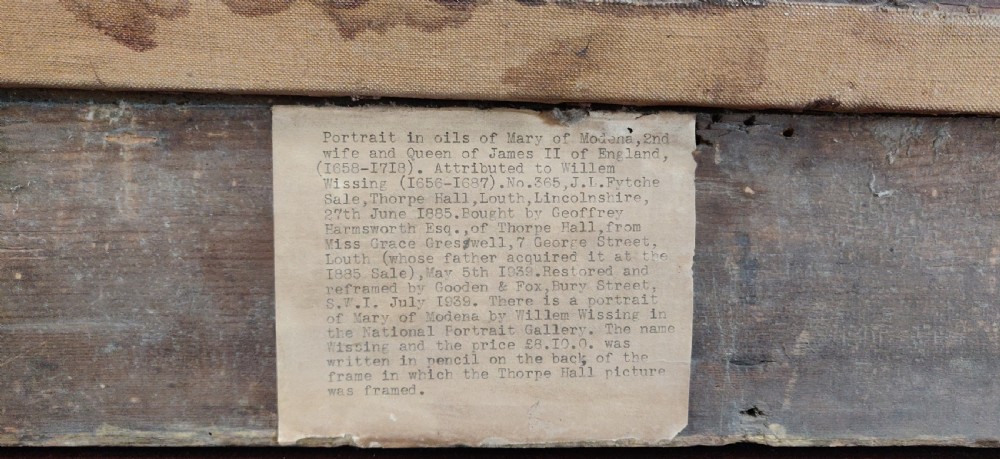 Portrait in oils of Mary of Modena,2nd
wife and Queen of James II of England,
(I658-I7I8). Attributed to Willem
Wissing (I656-I687).No.365,J.L.Fytche
Sale,Thorpe Hall,Louth,Lincolnshire,
27th June I885.Bought by Geoffrey
Harmsworth Esq.,of Thorpe Hall,from
Miss Grace Gresswell,7 George Street,
Louth (whose father acquired it at the
I885 Sale),May 5th I939.Restored and
reframed by Gooden & Fox,Bury Street,
S.W.I. July I939. There is a portrait
of Mary of Modena by Willem Wissing in
the National Portrait Gallery. The name
Wissing and the price £8.I0.0. was
written in pencil on the back of the
frame in which the Thorpe Hall picture
was framed.